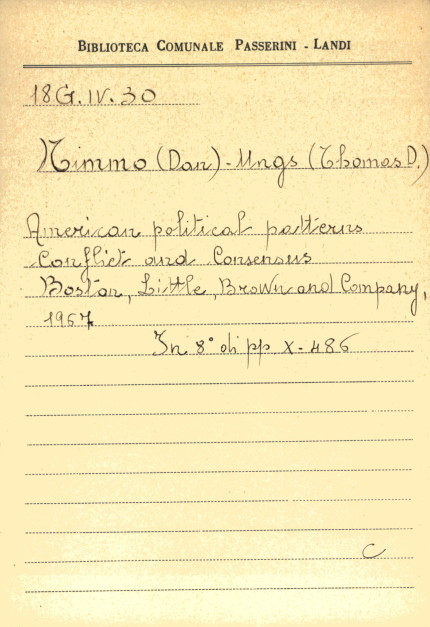 BIBLIOTECA COMUNALE PASSERINI - LANDI
18G.IV.30
Nimmo (Dan) - Ungs (Thomas D.)
American political patterns
Conflict and Consensus
Boston, Little, Brown and Company,
1967
In 8° di pp. X-486
C